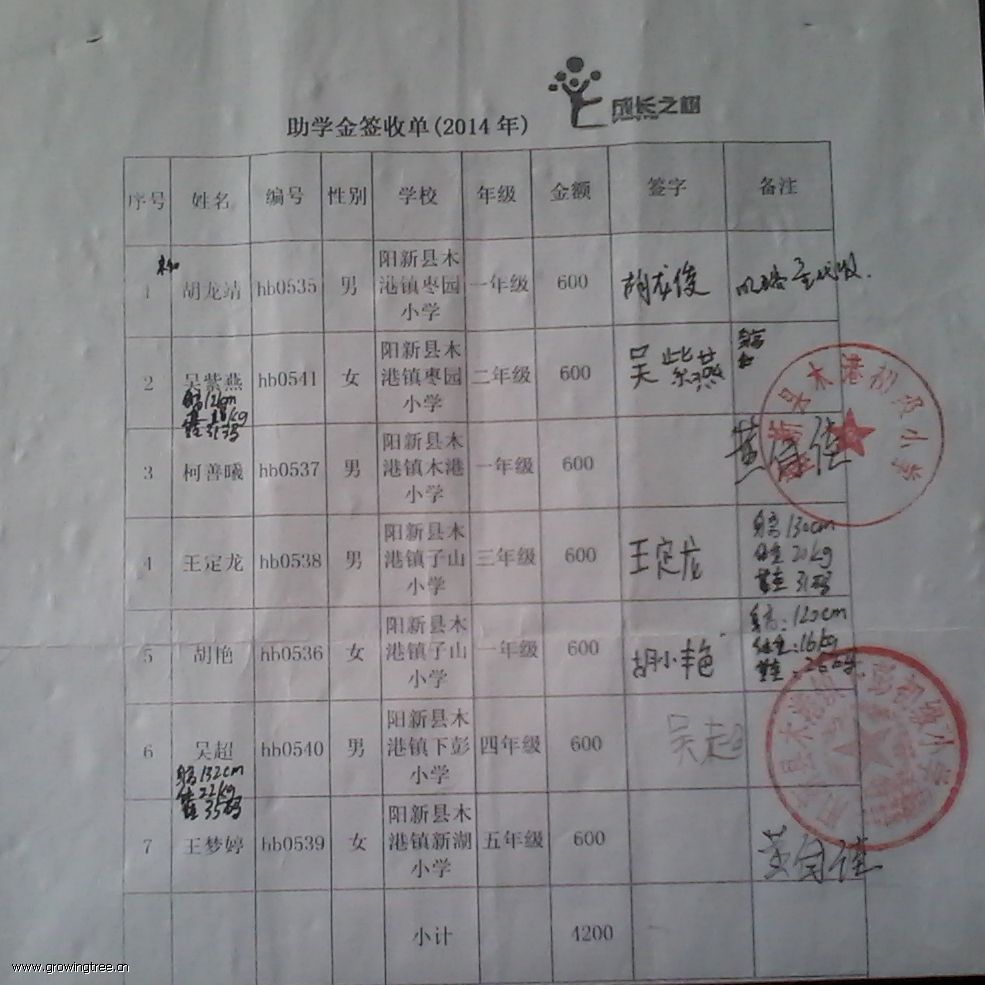 成长之树
助学金签收单(2014年)
序号 姓名 编号 性别 学校 年级 金额 签字 备注
1 胡龙靖 hb0535 男 阳新县木港镇枣园小学 一年级 600 胡龙俊
2 吴紫燕 hb0541 女 阳新县木港镇枣园小学 二年级 600 吴紫燕 身高
身高121cm
31码
3 柯善曦 hb0537 男 阳新县木港镇木港小学 一年级 600
4 王定龙 hb0538 男 阳新县木港镇子山小学 三年级 600 王定龙
身高130cm
体重20kg
鞋 31码
5 胡艳 hb0536 女 阳新县木港镇子山小学 一年级 600 胡小艳
身高:120cm
体重:16kg
6 吴超 hb0540 男 阳新县木港镇下彭小学 四年级 600 吴超
身高132cm
22kg
35码
7 王梦婷 hb0539 女 阳新县木港镇新湖小学 五年级 600
小计 4200
县木港初级小学
www.growingtree.cn